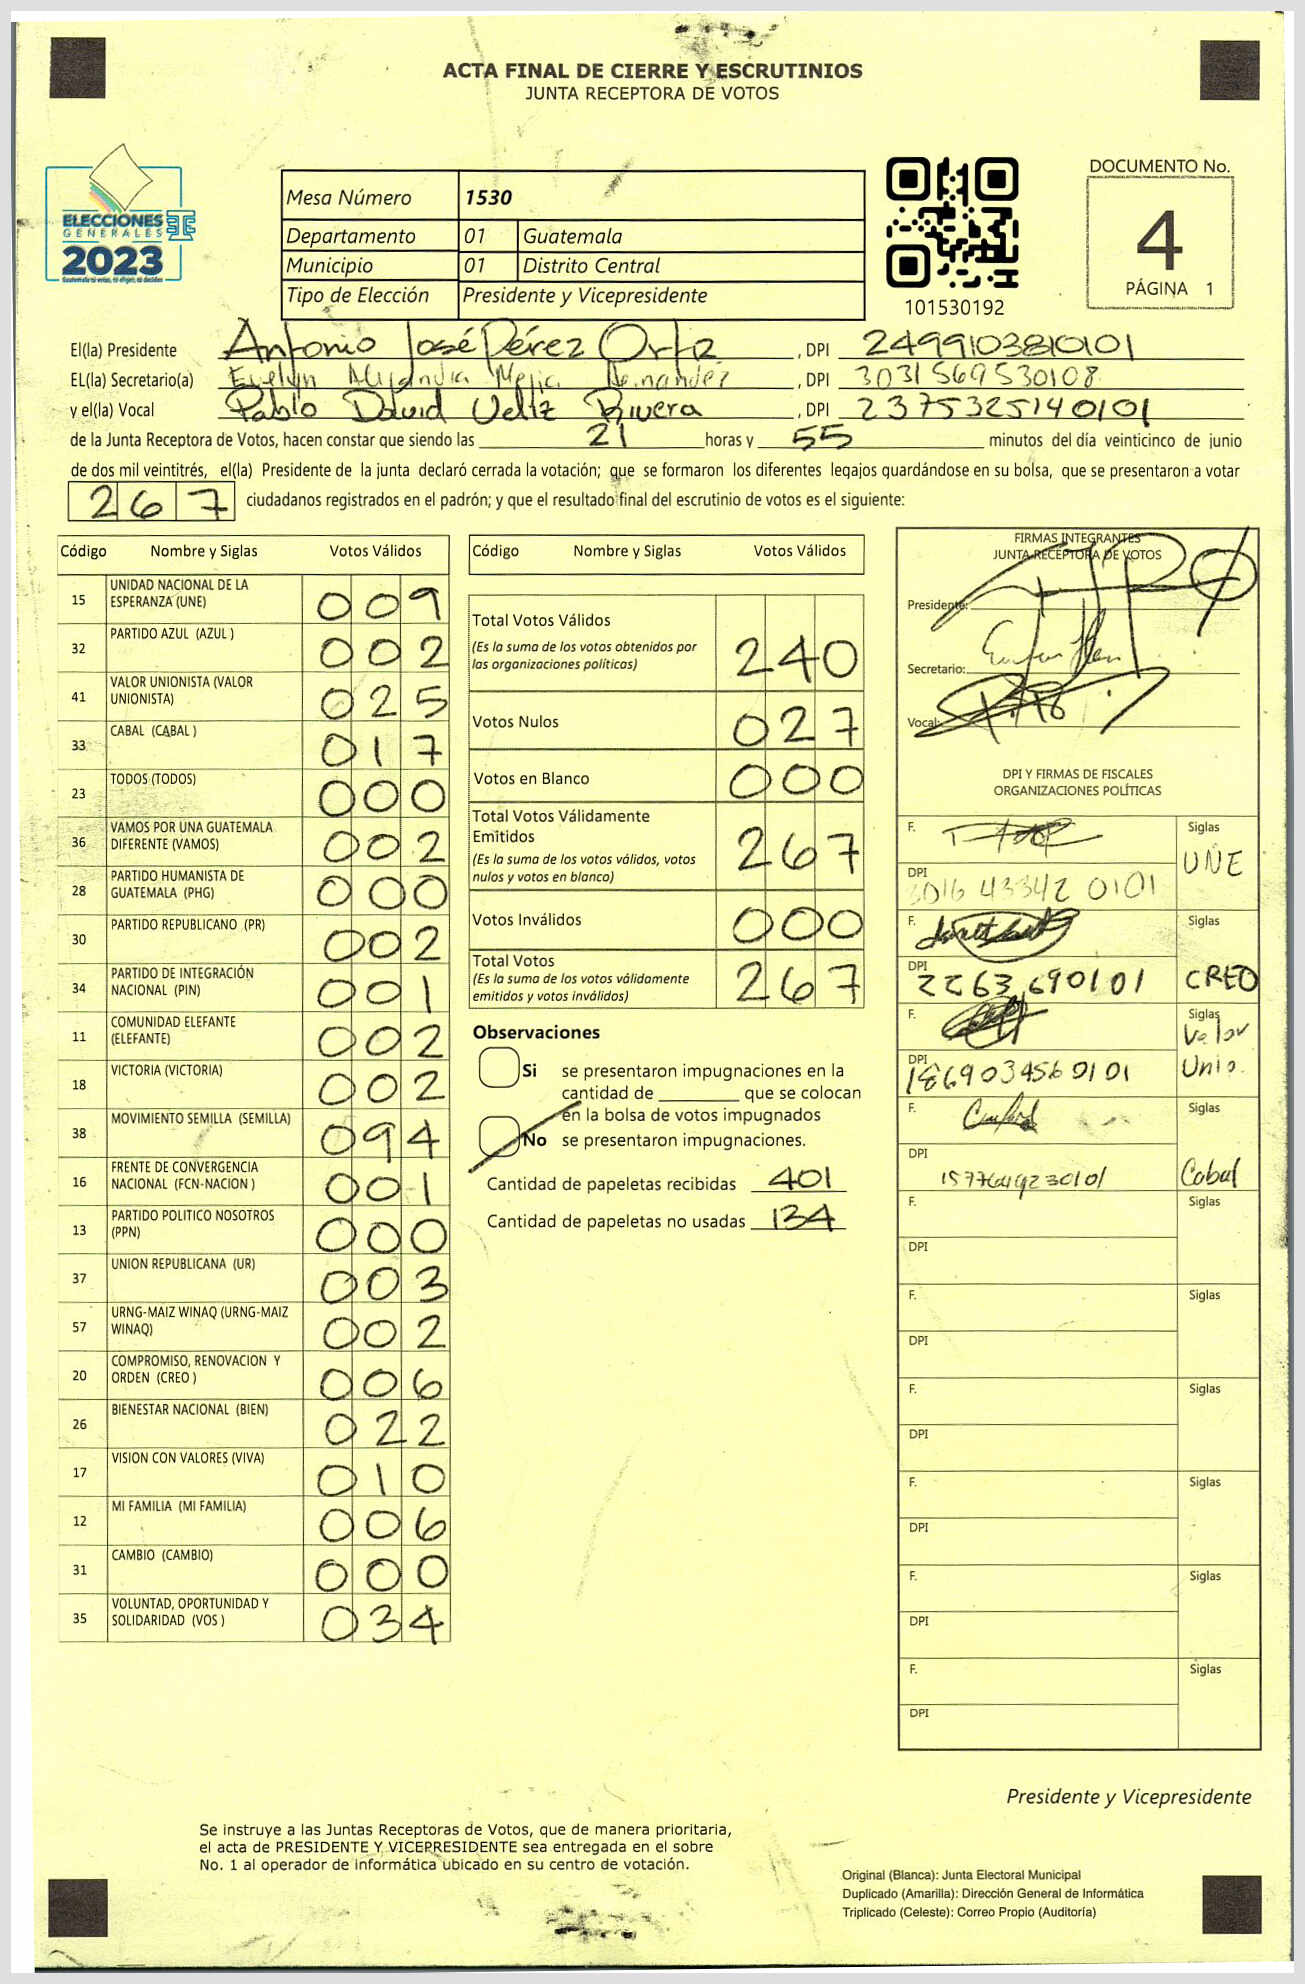 ACTA FINAL DE CIERRE Y ESCRUTINIOS
JUNTA RECEPTORA DE VOTOS
ELECCIONES
GENERALES
2023
Mesa Número 1530
Departamento 01 Guatemala
Municipio 01 Distrito Central
Tipo de Elección Presidente y Vicepresidente
101530192
DOCUMENTO No.
4
PÁGINA 1
El(la) Presidente Antonio José Pérez Ortiz , DPI 2499103810101
EL(la) Secretario(a) Evelyn Mejia Hernandez , DPI 3031569530108
y el(la) Vocal Pablo David Veliz Rivera , DPI 2375325140101
de la Junta Receptora de Votos, hacen constar que siendo las 21 horas y 55 minutos del día veinticinco de junio
de dos mil veintitrés, el(la) Presidente de la junta declaró cerrada la votación; que se formaron los diferentes legajos guardándose en su bolsa, que se presentaron a votar
267 ciudadanos registrados en el padrón; y que el resultado final del escrutinio de votos es el siguiente:
Código Nombre y Siglas Votos Válidos
15 UNIDAD NACIONAL DE LA
ESPERANZA (UNE) 009
32 PARTIDO AZUL (AZUL ) 002
41 VALOR UNIONISTA (VALOR
UNIONISTA) 025
33 CABAL (CABAL ) 017
23 TODOS (TODOS) 000
36 VAMOS POR UNA GUATEMALA
DIFERENTE (VAMOS) 002
28 PARTIDO HUMANISTA DE
GUATEMALA (PHG) 000
30 PARTIDO REPUBLICANO (PR) 002
34 PARTIDO DE INTEGRACIÓN
NACIONAL (PIN) 001
11 COMUNIDAD ELEFANTE
(ELEFANTE) 002
18 VICTORIA (VICTORIA) 002
38 MOVIMIENTO SEMILLA (SEMILLA) 094
16 FRENTE DE CONVERGENCIA
NACIONAL (FCN-NACION ) 001
13 PARTIDO POLITICO NOSOTROS
(PPN) 000
37 UNION REPUBLICANA (UR) 003
57 URNG-MAIZ WINAQ (URNG-MAIZ
WINAQ) 002
20 COMPROMISO, RENOVACION Y
ORDEN (CREO ) 006
26 BIENESTAR NACIONAL (BIEN) 022
17 VISION CON VALORES (VIVA) 010
12 MI FAMILIA (MI FAMILIA) 006
31 CAMBIO (CAMBIO) 000
35 VOLUNTAD, OPORTUNIDAD Y
SOLIDARIDAD (VOS ) 034
Código Nombre y Siglas Votos Válidos
Total Votos Válidos
(Es la suma de los votos obtenidos por
las organizaciones políticas) 240
Votos Nulos 027
Votos en Blanco 000
Total Votos Válidamente
Emitidos
(Es la suma de los votos válidos, votos
nulos y votos en blanco) 267
Votos Inválidos 000
Total Votos
(Es la suma de los votos válidamente
emitidos y votos inválidos) 267
Observaciones
Si se presentaron impugnaciones en la
cantidad de ________ que se colocan
en la bolsa de votos impugnados
No se presentaron impugnaciones.
Cantidad de papeletas recibidas 401
Cantidad de papeletas no usadas 134
FIRMAS INTEGRANTES
JUNTA RECEPTORA DE VOTOS
Presidente:
Secretario:
Vocal:
DPI Y FIRMAS DE FISCALES
ORGANIZACIONES POLÍTICAS
F. Siglas
UNE
DPI
3016 43342 0101
F. Siglas
DPI
2263690101 CREO
F. Siglas
Valor
DPI Unio.
1869034560101
F. Siglas
DPI
1577649230101 Cabal
F. Siglas
DPI
F. Siglas
DPI
F. Siglas
DPI
F. Siglas
DPI
F. Siglas
DPI
F. Siglas
DPI
Presidente y Vicepresidente
Se instruye a las Juntas Receptoras de Votos, que de manera prioritaria,
el acta de PRESIDENTE Y VICEPRESIDENTE sea entregada en el sobre
No. 1 al operador de informática ubicado en su centro de votación.
Original (Blanca): Junta Electoral Municipal
Duplicado (Amarilla): Dirección General de Informática
Triplicado (Celeste): Correo Propio (Auditoría)